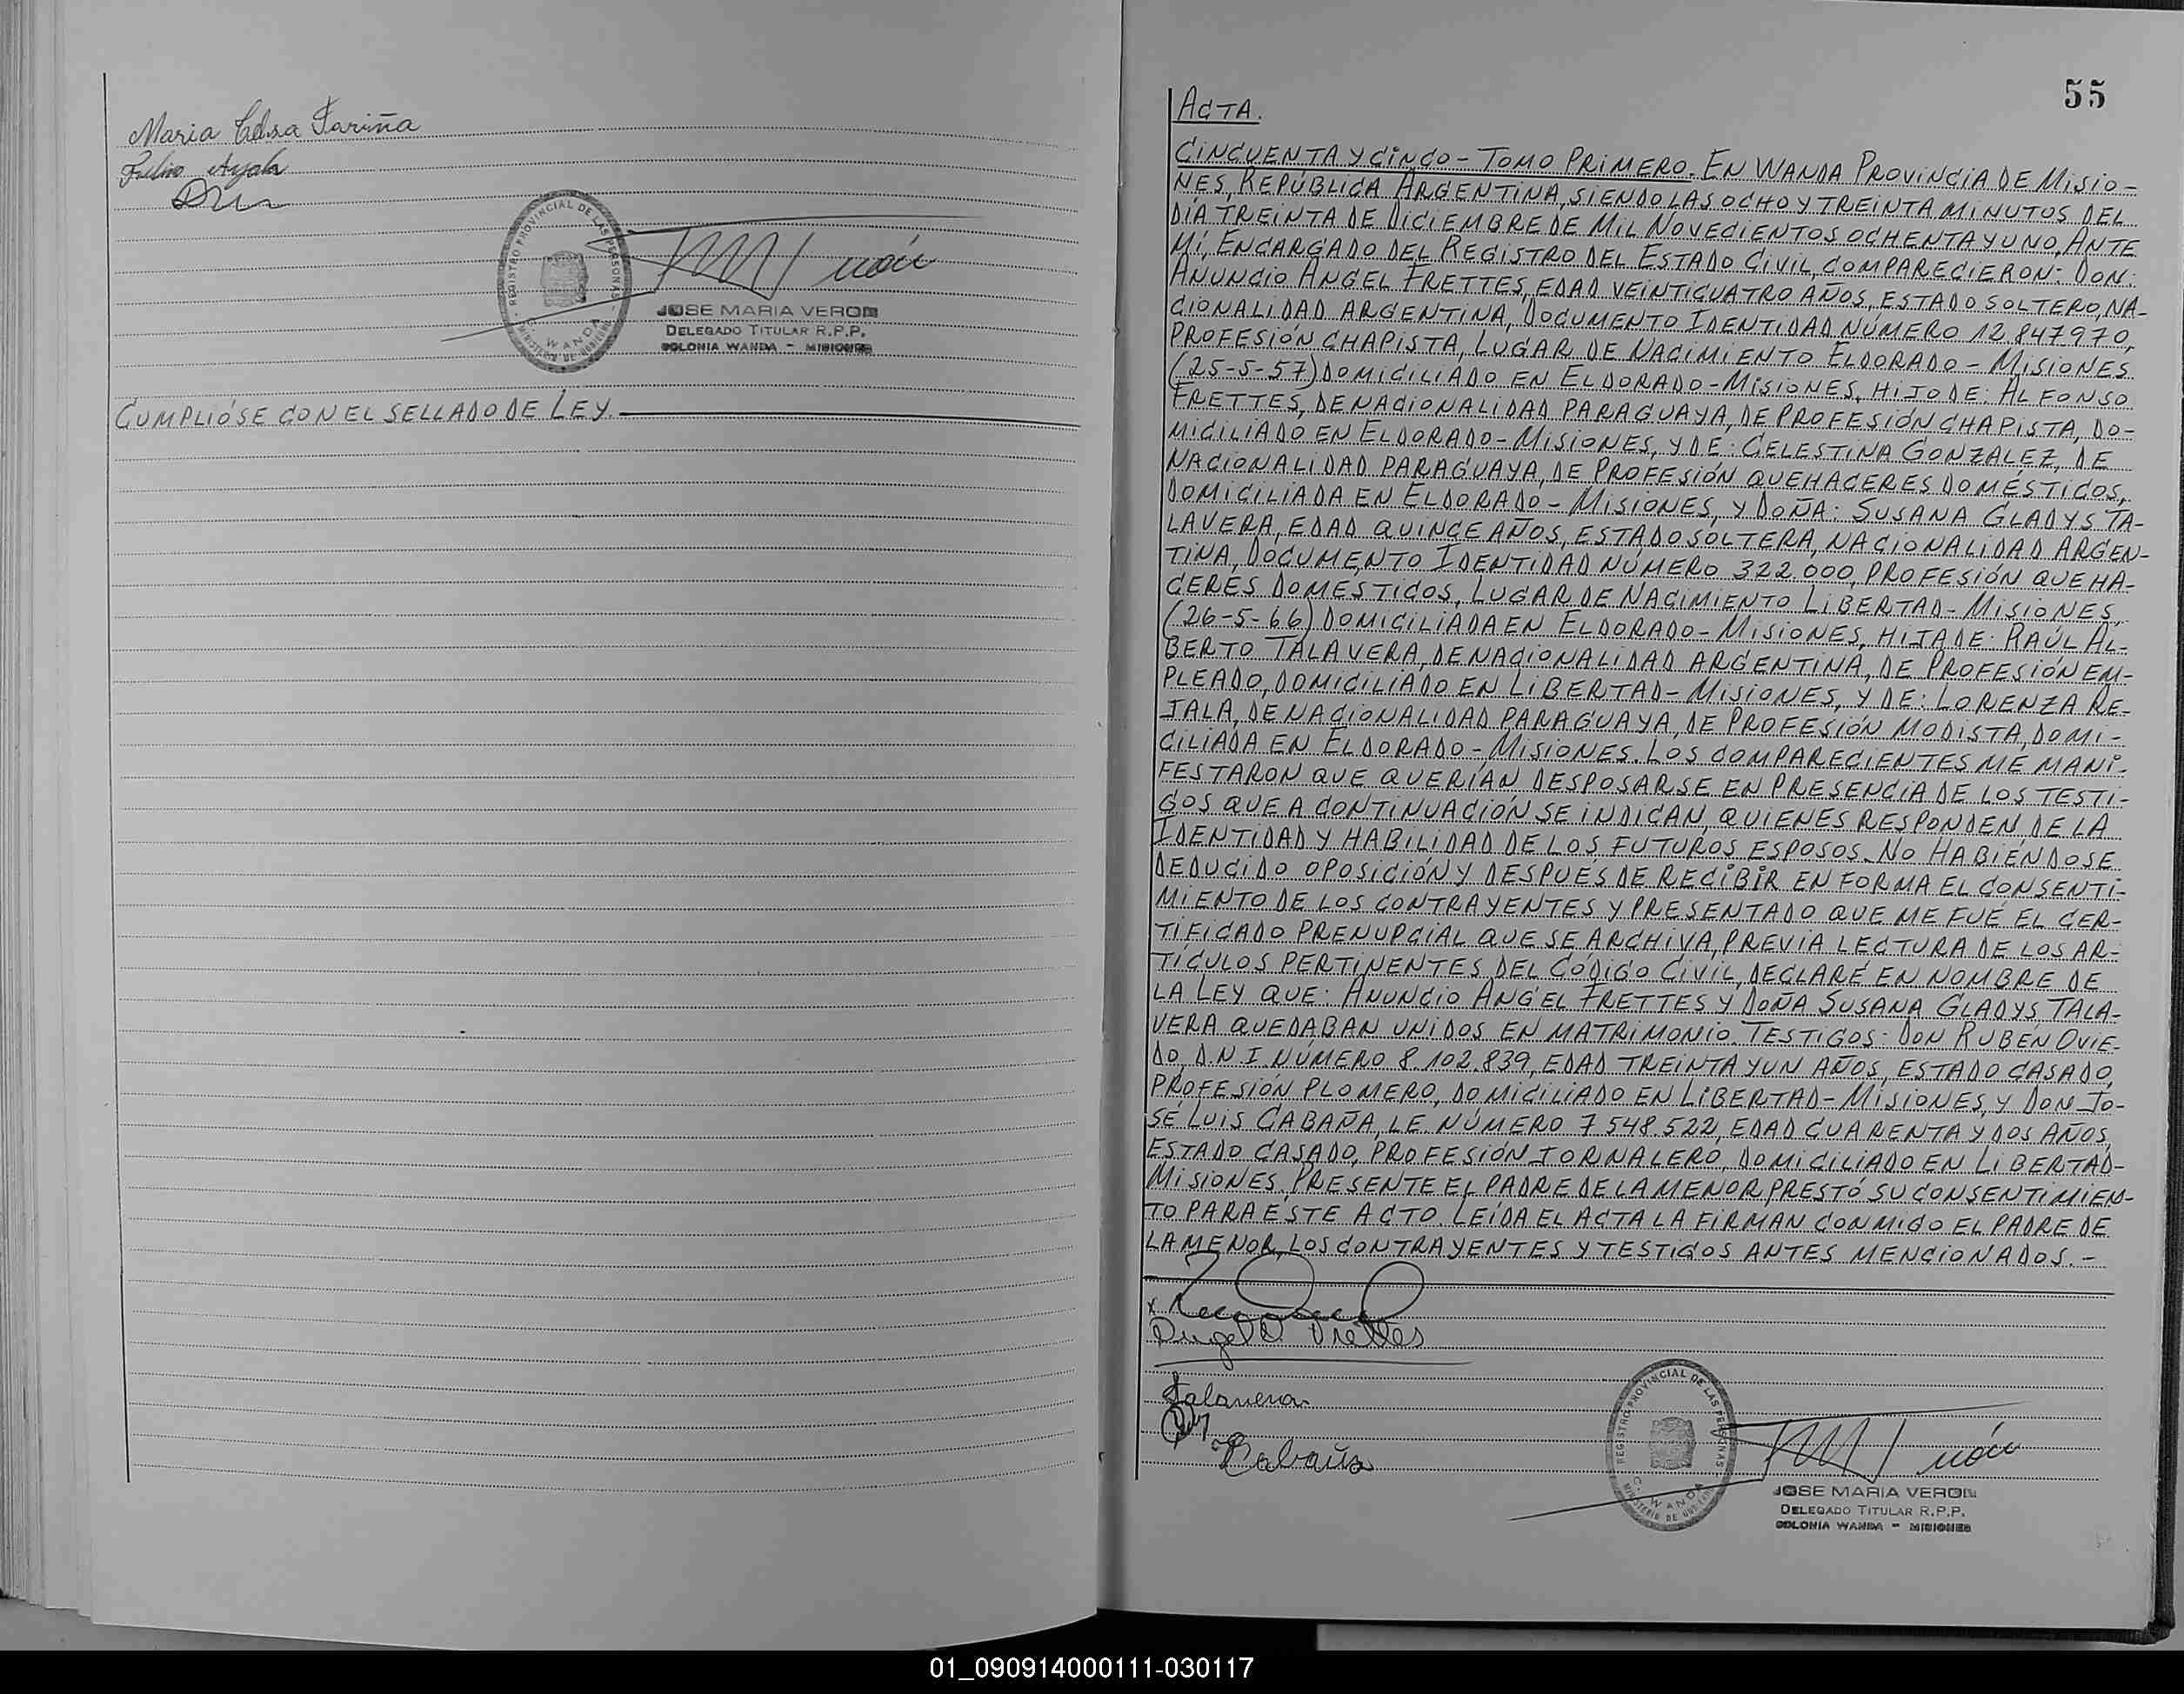 Maria Celsa Fariña
Julio Ayala
REGISTRO PROVINCIAL DE LAS PERSONAS
C. WANDA
MINISTERIO DE GOBIERNO
JOSE MARIA VERON
DELEGADO TITULAR R.P.P.
COLONIA WANDA - MISIONES
CUMPLIÓSE CON EL SELLADO DE LEY.
55
ACTA.
CINCUENTA Y CINCO - TOMO PRIMERO. EN WANDA PROVINCIA DE MISIO-
NES, REPÚBLICA ARGENTINA, SIENDO LAS OCHO Y TREINTA MINUTOS DEL
DÍA TREINTA DE DICIEMBRE DE MIL NOVECIENTOS OCHENTA Y UNO, ANTE
MÍ, ENCARGADO DEL REGISTRO DEL ESTADO CIVIL, COMPARECIERON: DON:
ANUNCIO ANGEL FRETTES, EDAD VEINTICUATRO AÑOS, ESTADO SOLTERO, NA-
CIONALIDAD ARGENTINA, DOCUMENTO IDENTIDAD NÚMERO 12.847970,
PROFESIÓN CHAPISTA, LUGAR DE NACIMIENTO ELDORADO - MISIONES
(25-5-57) DOMICILIADO EN ELDORADO - MISIONES, HIJO DE: ALFONSO
FRETTES, DE NACIONALIDAD PARAGUAYA, DE PROFESIÓN CHAPISTA, DO-
MICILIADO EN ELDORADO - MISIONES, Y DE: CELESTINA GONZALEZ, DE
NACIONALIDAD PARAGUAYA, DE PROFESIÓN QUEHACERES DOMÉSTICOS,
DOMICILIADA EN ELDORADO - MISIONES, Y DOÑA: SUSANA GLADYS TA-
LAVERA, EDAD QUINCE AÑOS, ESTADO SOLTERA, NACIONALIDAD ARGEN-
TINA, DOCUMENTO IDENTIDAD NÚMERO 322.000, PROFESIÓN QUEHA-
CERES DOMÉSTICOS, LUGAR DE NACIMIENTO LIBERTAD - MISIONES,
(26-5-66) DOMICILIADA EN ELDORADO - MISIONES, HIJA DE: RAÚL AL-
BERTO TALAVERA, DE NACIONALIDAD ARGENTINA, DE PROFESIÓN EM-
PLEADO, DOMICILIADO EN LIBERTAD - MISIONES, Y DE: LORENZA RE-
JALA, DE NACIONALIDAD PARAGUAYA, DE PROFESIÓN MODISTA, DOMI-
CILIADA EN ELDORADO - MISIONES. LOS COMPARECIENTES ME MANI-
FESTARON QUE QUERÍAN DESPOSARSE EN PRESENCIA DE LOS TESTI-
GOS QUE A CONTINUACIÓN SE INDICAN, QUIENES RESPONDEN DE LA
IDENTIDAD Y HABILIDAD DE LOS FUTUROS ESPOSOS. NO HABIÉNDOSE
DEDUCIDO OPOSICIÓN Y DESPUES DE RECIBIR EN FORMA EL CONSENTI-
MIENTO DE LOS CONTRAYENTES Y PRESENTADO QUE ME FUÉ EL CER-
TIFICADO PRENUPCIAL QUE SE ARCHIVA, PREVIA LECTURA DE LOS AR-
TÍCULOS PERTINENTES DEL CÓDIGO CIVIL, DECLARÉ EN NOMBRE DE
LA LEY QUE: ANUNCIO ANGEL FRETTES Y DOÑA SUSANA GLADYS TALA-
VERA QUEDABAN UNIDOS EN MATRIMONIO. TESTIGOS: DON RUBÉN OVIE-
DO, D.N.I. NÚMERO 8.102.839, EDAD TREINTA Y UN AÑOS, ESTADO CASADO,
PROFESIÓN PLOMERO, DOMICILIADO EN LIBERTAD - MISIONES, Y DON JO-
SÉ LUIS CABAÑA, LE NÚMERO 7 548 522, EDAD CUARENTA Y DOS AÑOS,
ESTADO CASADO, PROFESIÓN JORNALERO, DOMICILIADO EN LIBERTAD-
MISIONES, PRESENTE EL PADRE DE LA MENOR, PRESTÓ SU CONSENTIMIEN-
TO PARA ÉSTE ACTO. LEÍDA EL ACTA LA FIRMAN CONMIGO EL PADRE DE
LA MENOR, LOS CONTRAYENTES Y TESTIGOS ANTES MENCIONADOS. -
x
Angel A. Frettes
Talavera
Cabaña
REGISTRO PROVINCIAL DE LAS PERSONAS
C. WANDA
MINISTERIO DE GOBIERNO
JOSE MARIA VERON
DELEGADO TITULAR R.P.P.
COLONIA WANDA - MISIONES
01_090914000111-030117